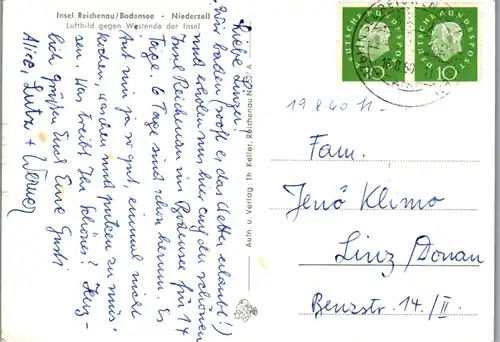 Insel Reichenau/Bodensee - Niederzell
Luftbild gegen Westende der Insel
Liebe Linzer!
Wir baden (sooft es das Wetter erlaubt!)
und erholen uns hier auf der schönen
Insel Reichenau im Bodensee für 14
Tage. 6 Tage sind schon herum. Es
tut mir ja so gut, einmal nicht
kochen, waschen und putzen zu müs-
sen. Was treibt Ihr Schönes? Herz-
lich grüßen Euch Eure Gusti
Alice, Lutz + Werner
Aufn. u. Verlag Th. Keller, Reichenau
DEUTSCHE BUNDESPOST
10
DEUTSCHE BUNDESPOST
10
19 8.60 H-
Fam.
Jenö Klimo
Linz/Donau
Benzstr. 14./II.